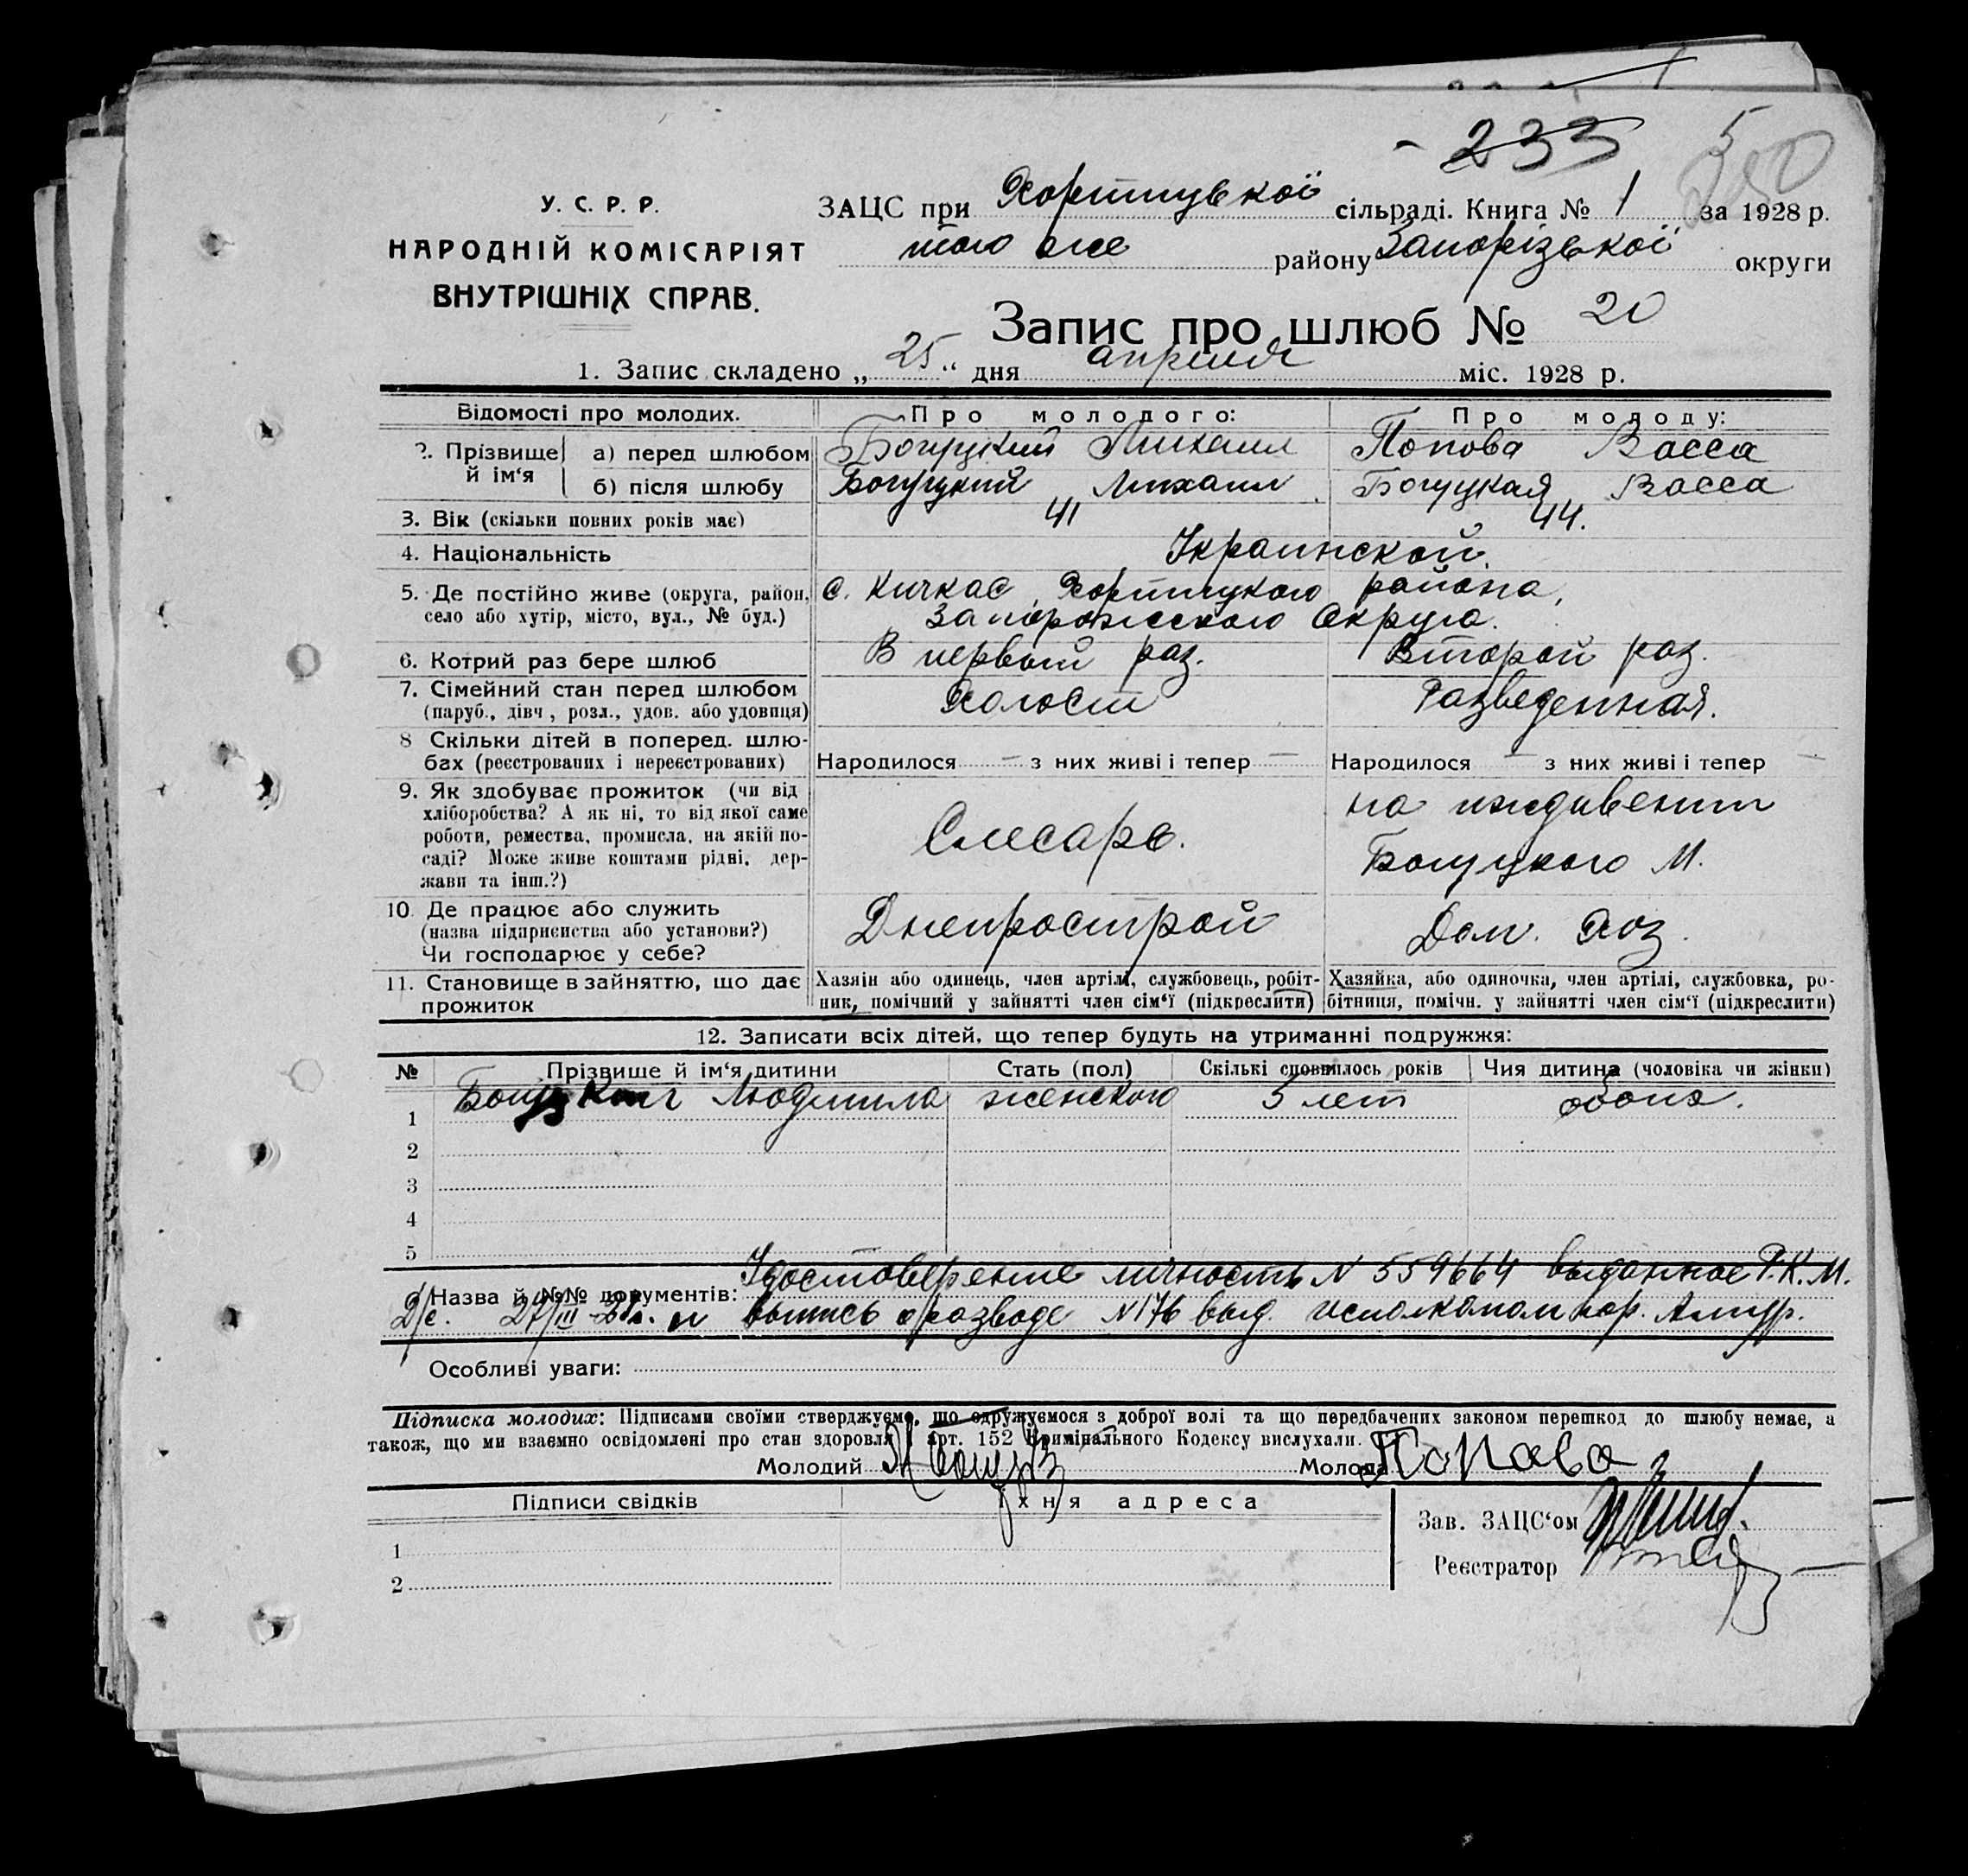 - 233 5
У. С. Р. Р.
НАРОДНІЙ КОМІСАРІЯТ
ВНУТРІШНІХ СПРАВ.
ЗАЦС при Хортицької сільраді. Книга № 1 за 1928 р.
того же району Запорізької округи
Запис про шлюб № 20
1. Запис складено „ 25 “ дня апреля міс. 1928 р.
Відомості про молодих. Про молодого: Про молоду:
2. Прізвище й ім‘я а) перед шлюбом Богуцкий Михаил Попова Васса
б) після шлюбу Богуцкий Михаил Богуцкая Васса
3. Вік (скільки повних років має) 41 44.
4. Національність Украинской.
5. Де постійно живе (округа, район, с. Кичкас, Хортицкого района,
село або хутір, місто, вул., № буд.) Запорожского Округа.
6. Котрий раз бере шлюб В первый раз. Второй раз.
7. Сімейний стан перед шлюбом Холост Разведенная.
(паруб., дівч., розл., удов. або удовиця)
8 Скільки дітей в поперед. шлю-
бах (реєстрованих і нереєстрованих) Народилося — з них живі і тепер — Народилося — з них живі і тепер —
9. Як здобуває прожиток (чи від на иждивении
хліборобства? А як ні, то від якої саме
роботи, ремества, промисла, на якій по- Слесарь.
саді? Може живе коштами рідні, дер- Богуцкого М.
жави та інш.?)
10. Де працює або служить Днепрострой Дом. Хоз.
(назва підприємства або установи?)
Чи господарює у себе?
11. Становище в зайняттю, що дає Хазяїн або одинець, член артілі, службовець, робіт- Хазяйка, або одиночка, член артілі, службовка, ро-
прожиток ник, помічний у зайнятті член сім‘ї (підкреслити) бітниця, помічн. у зайнятті член сім‘ї (підкреслити)
12. Записати всіх дітей, що тепер будуть на утриманні подружжя:
№ Прізвище й ім‘я дитини Стать (пол) Скількі сповнилось років Чия дитина (чоловіка чи жінки)
1 Людмила женского 5 лет обоих.
2
3
4
5
Назва й №№ документів: Удостоверение личность N 559664 выданное Р.К.М.
27/III и выпись о разводе N 176 выд. исполкомом гор. Амур.
Особливі уваги:
Підписка молодих: Підписами своїми стверджуємо, що одружуємося з доброї волі та що передбачених законом перешкод до шлюбу немає, а
також, що ми взаємно освідомлені про стан здоровля і арт. 152 Кримінального Кодексу вислухали.
Молодий Молода Попава
Підписи свідків Їхня адреса
Зав. ЗАЦС‘ом
1
Реєстратор
2